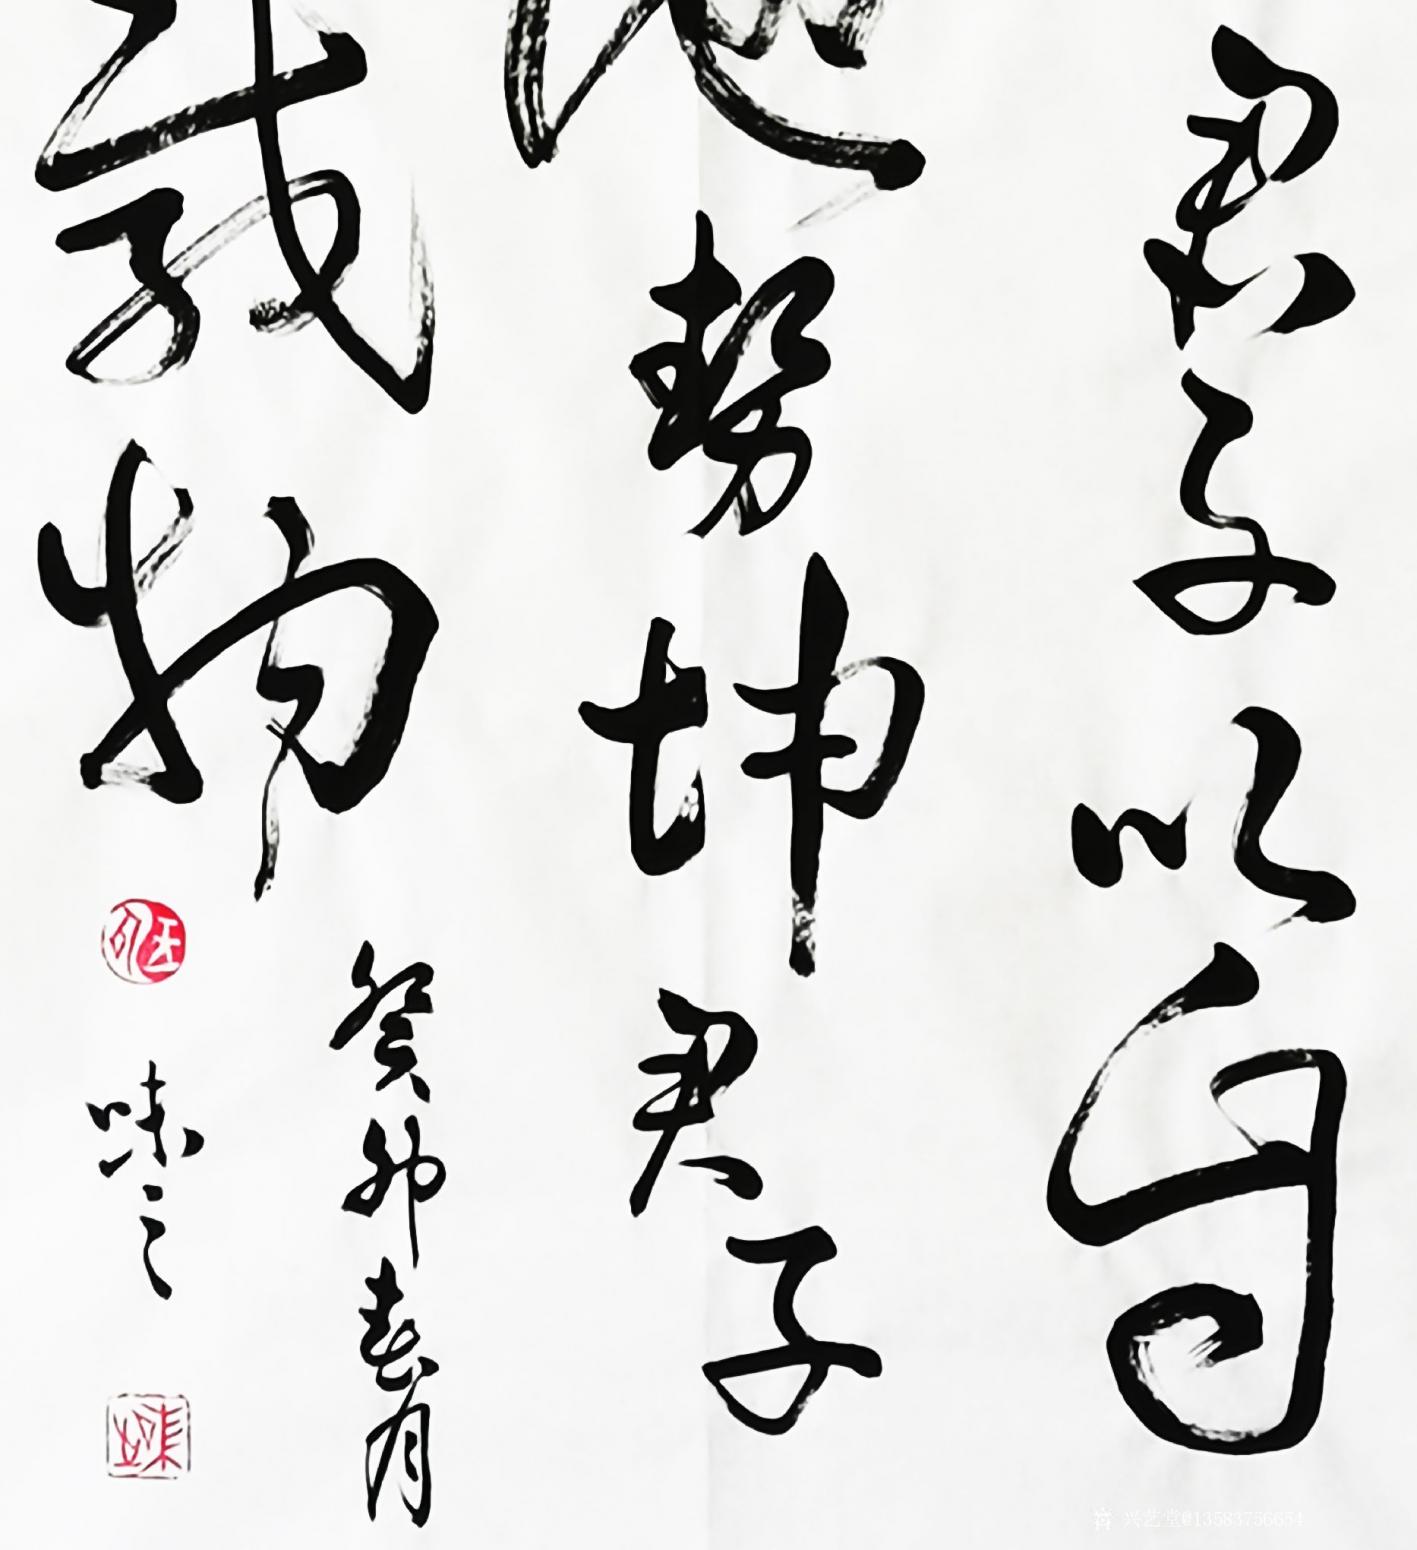 君子以自
地势坤君子
载物
癸卯春月
味之
兴艺堂@13583756654